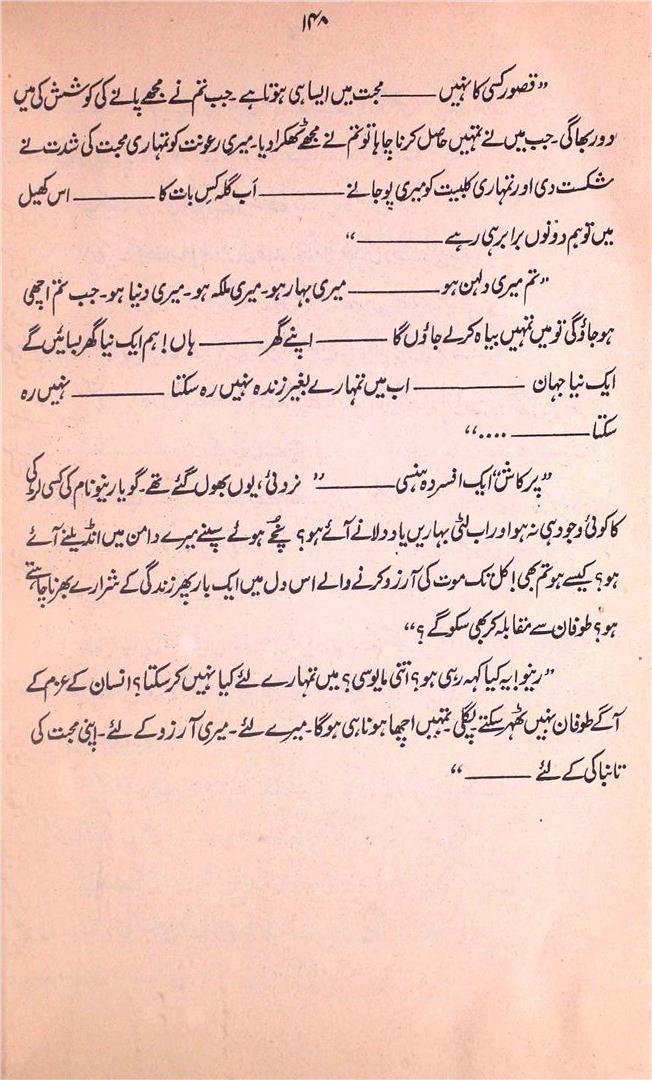 ۱۴۸
"قصور کسی کا نہیں ——— محبت میں ایسا ہی ہوتا ہے۔ جب تم نے مجھے پانے کی کوشش کی میں
دور بھاگی۔ جب میں نے تمہیں حاصل کرنا چاہا تو تم نے مجھے ٹھکرا دیا۔ میری رعونت کو تمہاری محبت کی شدت نے
شکست دی اور تمہاری کلبیت کو میری پوجا نے ——— اَب گلہ کِس بات کا ——— اس کھیل
میں تو ہم دونوں برابر ہی رہے ——— "
"تم میری دلہن ہو ——— میری بہار ہو۔ میری ملکہ ہو۔ میری دنیا ہو۔ جب تم اچھی
ہو جاؤ گی تو میں تمہیں بیاہ کر لے جاؤں گا ——— اپنے گھر ——— ہاں! ہم ایک نیا گھر بسائیں گے
ایک نیا جہان ——— اب میں تمہارے بغیر زندہ نہیں رہ سکتا ——— نہیں رہ
سکتا ——— ...."
"پرکاش" ایک افسردہ ہنسی ——— " نردئی، یوں بھول گئے تھے۔ گویا رینو نام کی کسی لڑکی
کا کوئی وجود ہی نہ ہو اور اب لٹی بہاریں یاد دلانے آئے ہو؟ ہوئے سپنے میرے دامن میں انڈیلنے آئے
ہو؟ کیسے ہو تم بھی! کل تک موت کی آرزو کرنے والے اس دل میں ایک بار پھر زندگی کے شرارے بھرنا چاہتے
ہو؟ طوفان سے مقابلہ کر بھی سکو گے؟"
"رینو! یہ کیا کہہ رہی ہو؟ اتنی مایوسی؟ میں تمہارے لئے کیا نہیں کر سکتا؟ انسان کے عزم کے
آگے طوفان نہیں ٹھہر سکتے پگلی۔ تمہیں اچھا ہونا ہی ہو گا۔ میرے لئے۔ میری آرزو کے لئے۔ اپنی محبت کی
تابناکی کے لئے ——— "